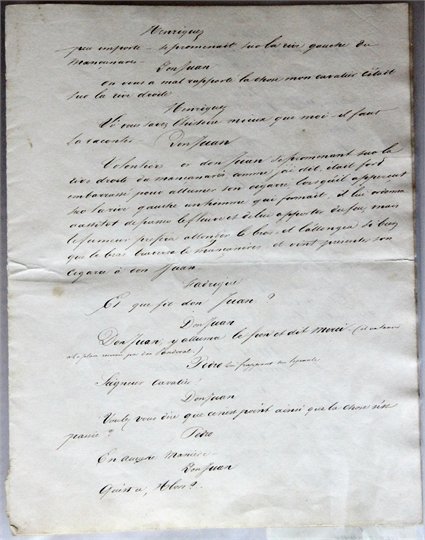 Henriquez
peu importe - se promenait sur la rive gauche du
mancanarès -
Don Juan
On vous a mal rapporté la chose mon cavalier c'était
sur la rive droite
Henriquez
Si vous savez l'histoire mieux que moi - il faut
la raconter -
Don Juan
Volontiers - or don Juan se promenant sur la
rive droite du mancanarès comme j'ai dit, était fort
embarrassé pour allumer son cigare lorsqu'il apperçut
sur la rive gauche un homme qui fumait, il lui ordonna
aussitot de passer le fleuve et à lui apporter du feu, mais
le fumeur préféra allonger le bras et l'allongea si bien
que le bras traversa le mancanarès et vint présenter son
cigare à don Juan
Rodrigue
Et que fit don Juan ?
Don Juan
Don Juan y alluma le sien et dit merci
Pedro lui frappant sur l'epaule
Seigneur cavalier !
Don Juan
Voulez vous dire que ce n'est point ainsi que la chose s'est
passée ?
Pedro
En aucune manière
Don Juan
Qu'est-ce, Alors ?